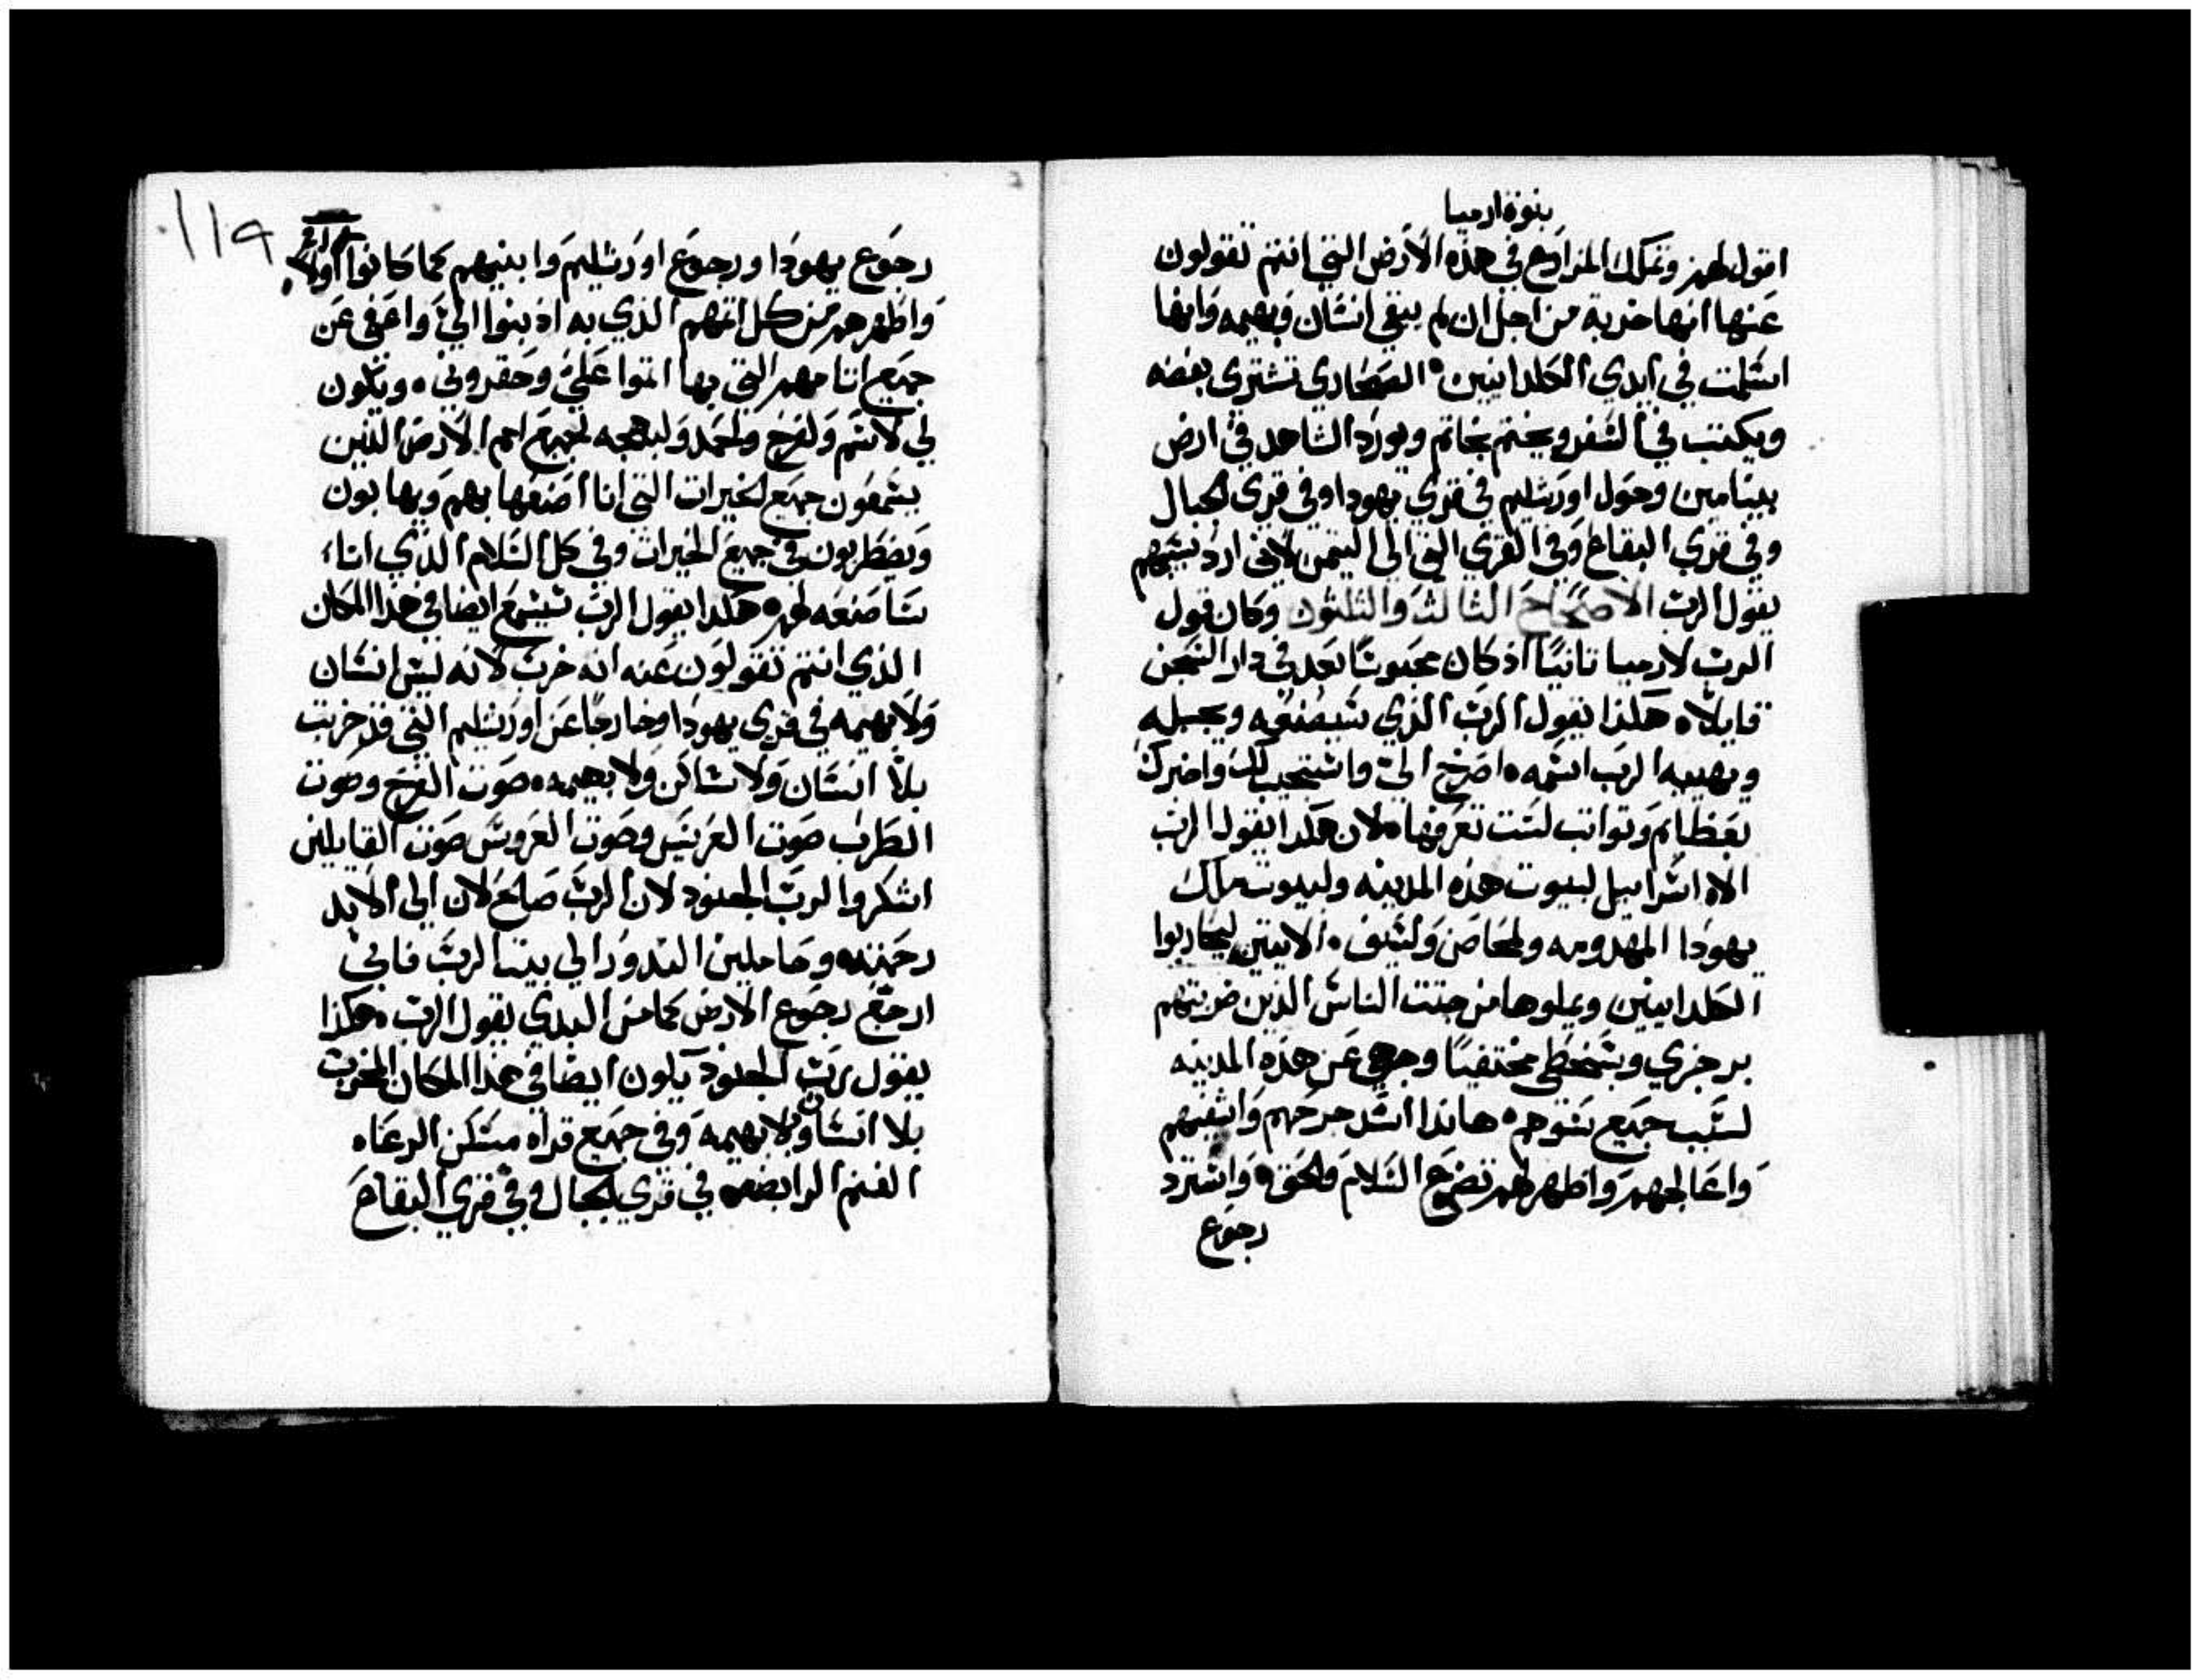 بنوة ارميا
اقول لهم وتملك المزارع في هذه الارض التي انتم تقولون
عنها انها خربة من اجل ان لم يبقي انسان وبهيمه وانها
اسلمت في ايدي الكلدانيين الصحاري تشتري بفضه
ويكتب في السفر ويختم بخاتم ويورد الشاهد في ارض
بينامين وحول اورشليم في قري يهودا وفي قري الجبال
وفي قري البقاع وفي القري التي الي التيمن لاني ارد سبيهم
يقول الرب الاصحاح الثالث والثلثون وكان قول
الرب لارميا تانيا اذ كان محبوسا بعد في دار السجن
قايلا هكذا يقول الرب الذي سيصنعه ويجبله
ويهييه الرب اسمه اصرخ الي واستجيب لك واخبرك
بعظايم وتوابت لست تعرفها لان هكذا يقول الرب
الاه اسراييل لبيوت هذه المدينه ولبيوت ملك
يهودا المهدومه ولمحاصن ولسيف الاتيين ليحاربوا
الكلدانيين ويملوها من جتت الناس الذين ضربتهم
برجزي وبسخطي مختفيا وجهي عن هذه المدينه
لسبب جميع شوهم هانذا اشد جرحهم واشفيهم
واعالجهم واظهر لهم تضرع السلام والحق واسترد
رجوع
119
رجوع يهودا ورجوع اورشليم وابنيهم كما كانوا اولا
واطهرهم من كل اتمهم الذي به اذنبوا الي واعفي عن
جميع اتامهم التي بها اتموا علي وحقروني ويكون
لي لاسم ولفرح ولحمد ولبهجه لجميع امم الارض الذين
يسمعون جميع الخيرات التي انا اصنعها بهم ويهابون
ويضطربون في جميع الخيرات وفي كل السلام الذي انا
ساصنعه لهم هكذا يقول الرب سيسمع ايضا في هذا المكان
الذي انتم تقولون عنه انه خرب لانه ليس انسان
ولا بهيمه في قري يهودا وخارجا عن اورشليم التي قد خربت
بلا انسان ولا ساكن ولا بهيمه صوت الفرح وصوت
الطرب صوت العريس وصوت العروس صوت القايلين
اشكروا لرب الجنود لان الرب صالح لان الي الابد
رحمته وحاملين الندور الي بيت الرب فاني
ارجع رجوع الارض كما من البدي يقول الرب هكذا
يقول رب الجنود يكون ايضا في هذا المكان المخرب
بلا انسان وبلا بهيمه وفي جميع قراه مسكن الرعاه
الغنم الرابضه في قري الجبال وفي قري البقاع